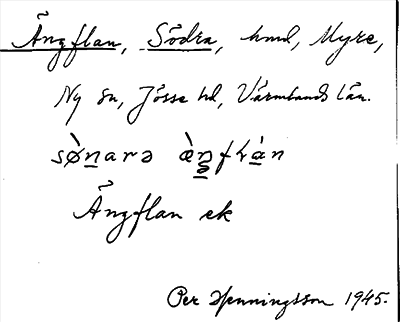 Ängflan, Södra, hmd, Myre,
Ny sn, Jösse hd, Värmlands län.
Ängflan ek
Per Henningsson 1945.